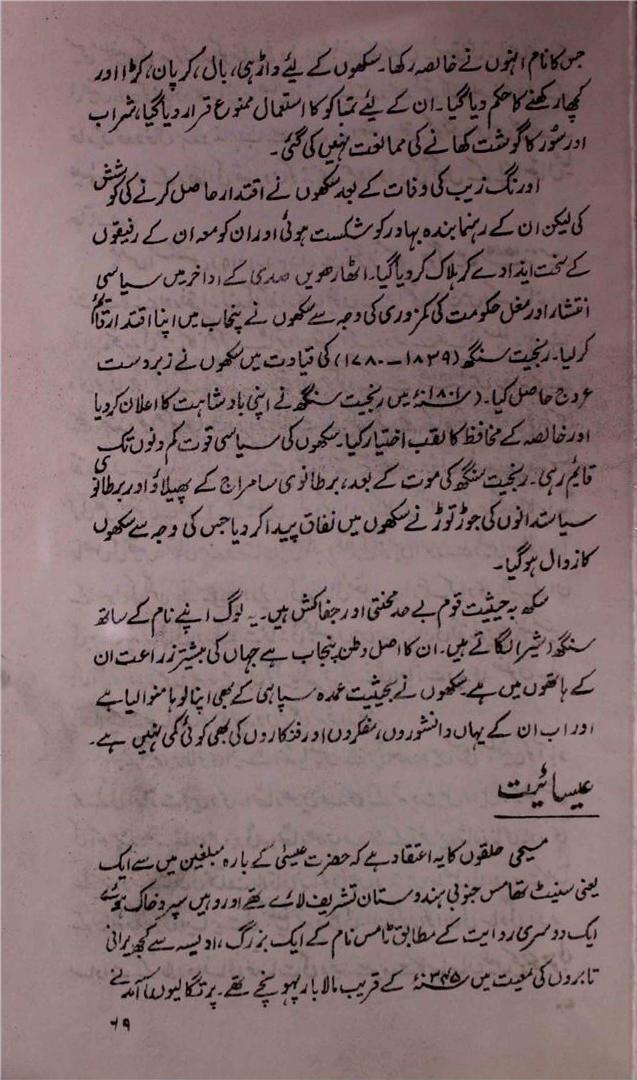 جس کا نام انہوں نے خالصہ رکھا۔ سکھوں کے لیئے داڑھی، بال، کرپان، کڑا اور
کچھا رکھنے کا حکم دیا گیا۔ ان کے لیئے تمباکو کا استعمال ممنوع قرار دیا گیا، شراب
اور سؤر کا گوشت کھانے کی ممانعت نہیں کی گئی۔
اورنگ زیب کی وفات کے بعد سکھوں نے اقتدار حاصل کرنے کی کوشش
کی لیکن ان کے رہنما بندہ بہادر کو شکست ہوئی اور ان کو معہ ان کے رفیقوں
کے سخت ایذا دے کر ہلاک کر دیا گیا۔ اٹھارھویں صدی کے اواخر میں سیاسی
انتشار اور مغل حکومت کی کمزوری کی وجہ سے سکھوں نے پنجاب میں اپنا اقتدار قائم
کر لیا۔ رنجیت سنگھ (۱۸۳۹ – ۱۷۸۰) کی قیادت میں سکھوں نے زبردست
عروج حاصل کیا۔ (۱۸۰۱ء میں رنجیت سنگھ نے اپنی بادشاہت کا اعلان کر دیا
اور خالصہ کے محافظ کا لقب اختیار کیا۔ سکھوں کی سیاسی قوت کم دنوں تک
قایم رہی۔ رنجیت سنگھ کی موت کے بعد، برطانوی سامراج کے پھیلاؤ اور برطانوی
سیاستدانوں کی جوڑ توڑ نے سکھوں میں نفاق پیدا کر دیا جس کی وجہ سے سکھوں
کا زوال ہو گیا۔
سکھ بہ حیثیت قوم بے حد محنتی اور جفاکش ہیں۔ یہ لوگ اپنے نام کے ساتھ
سنگھ (شیر) لگاتے ہیں۔ ان کا اصل وطن پنجاب ہے جہاں کی بیشتر زراعت ان
کے ہاتھوں میں ہے۔ سکھوں نے بحیثیت عمدہ سپاہی کے بھی اپنا لوہا منوا لیا ہے
اور اب ان کے یہاں دانشوروں، مفکروں اور فنکاروں کی بھی کوئی کمی نہیں ہے۔
عیسائیت
مسیحی حلقوں کا یہ اعتقاد ہے کہ حضرت عیسیٰ کے بارہ مبلغین میں سے ایک
یعنی سینٹ تھامس جنوبی ہندوستان تشریف لائے تھے اور وہیں سپرد خاک ہوئے
ایک دوسری روایت کے مطابق ٹامس نام کے ایک بزرگ، ادیسہ سے کچھ ایرانی
تاجروں کی معیت میں ۳۴۵ء کے قریب مالابار پہونچے تھے۔ پرتگالیوں کی آمد نے
۶۹